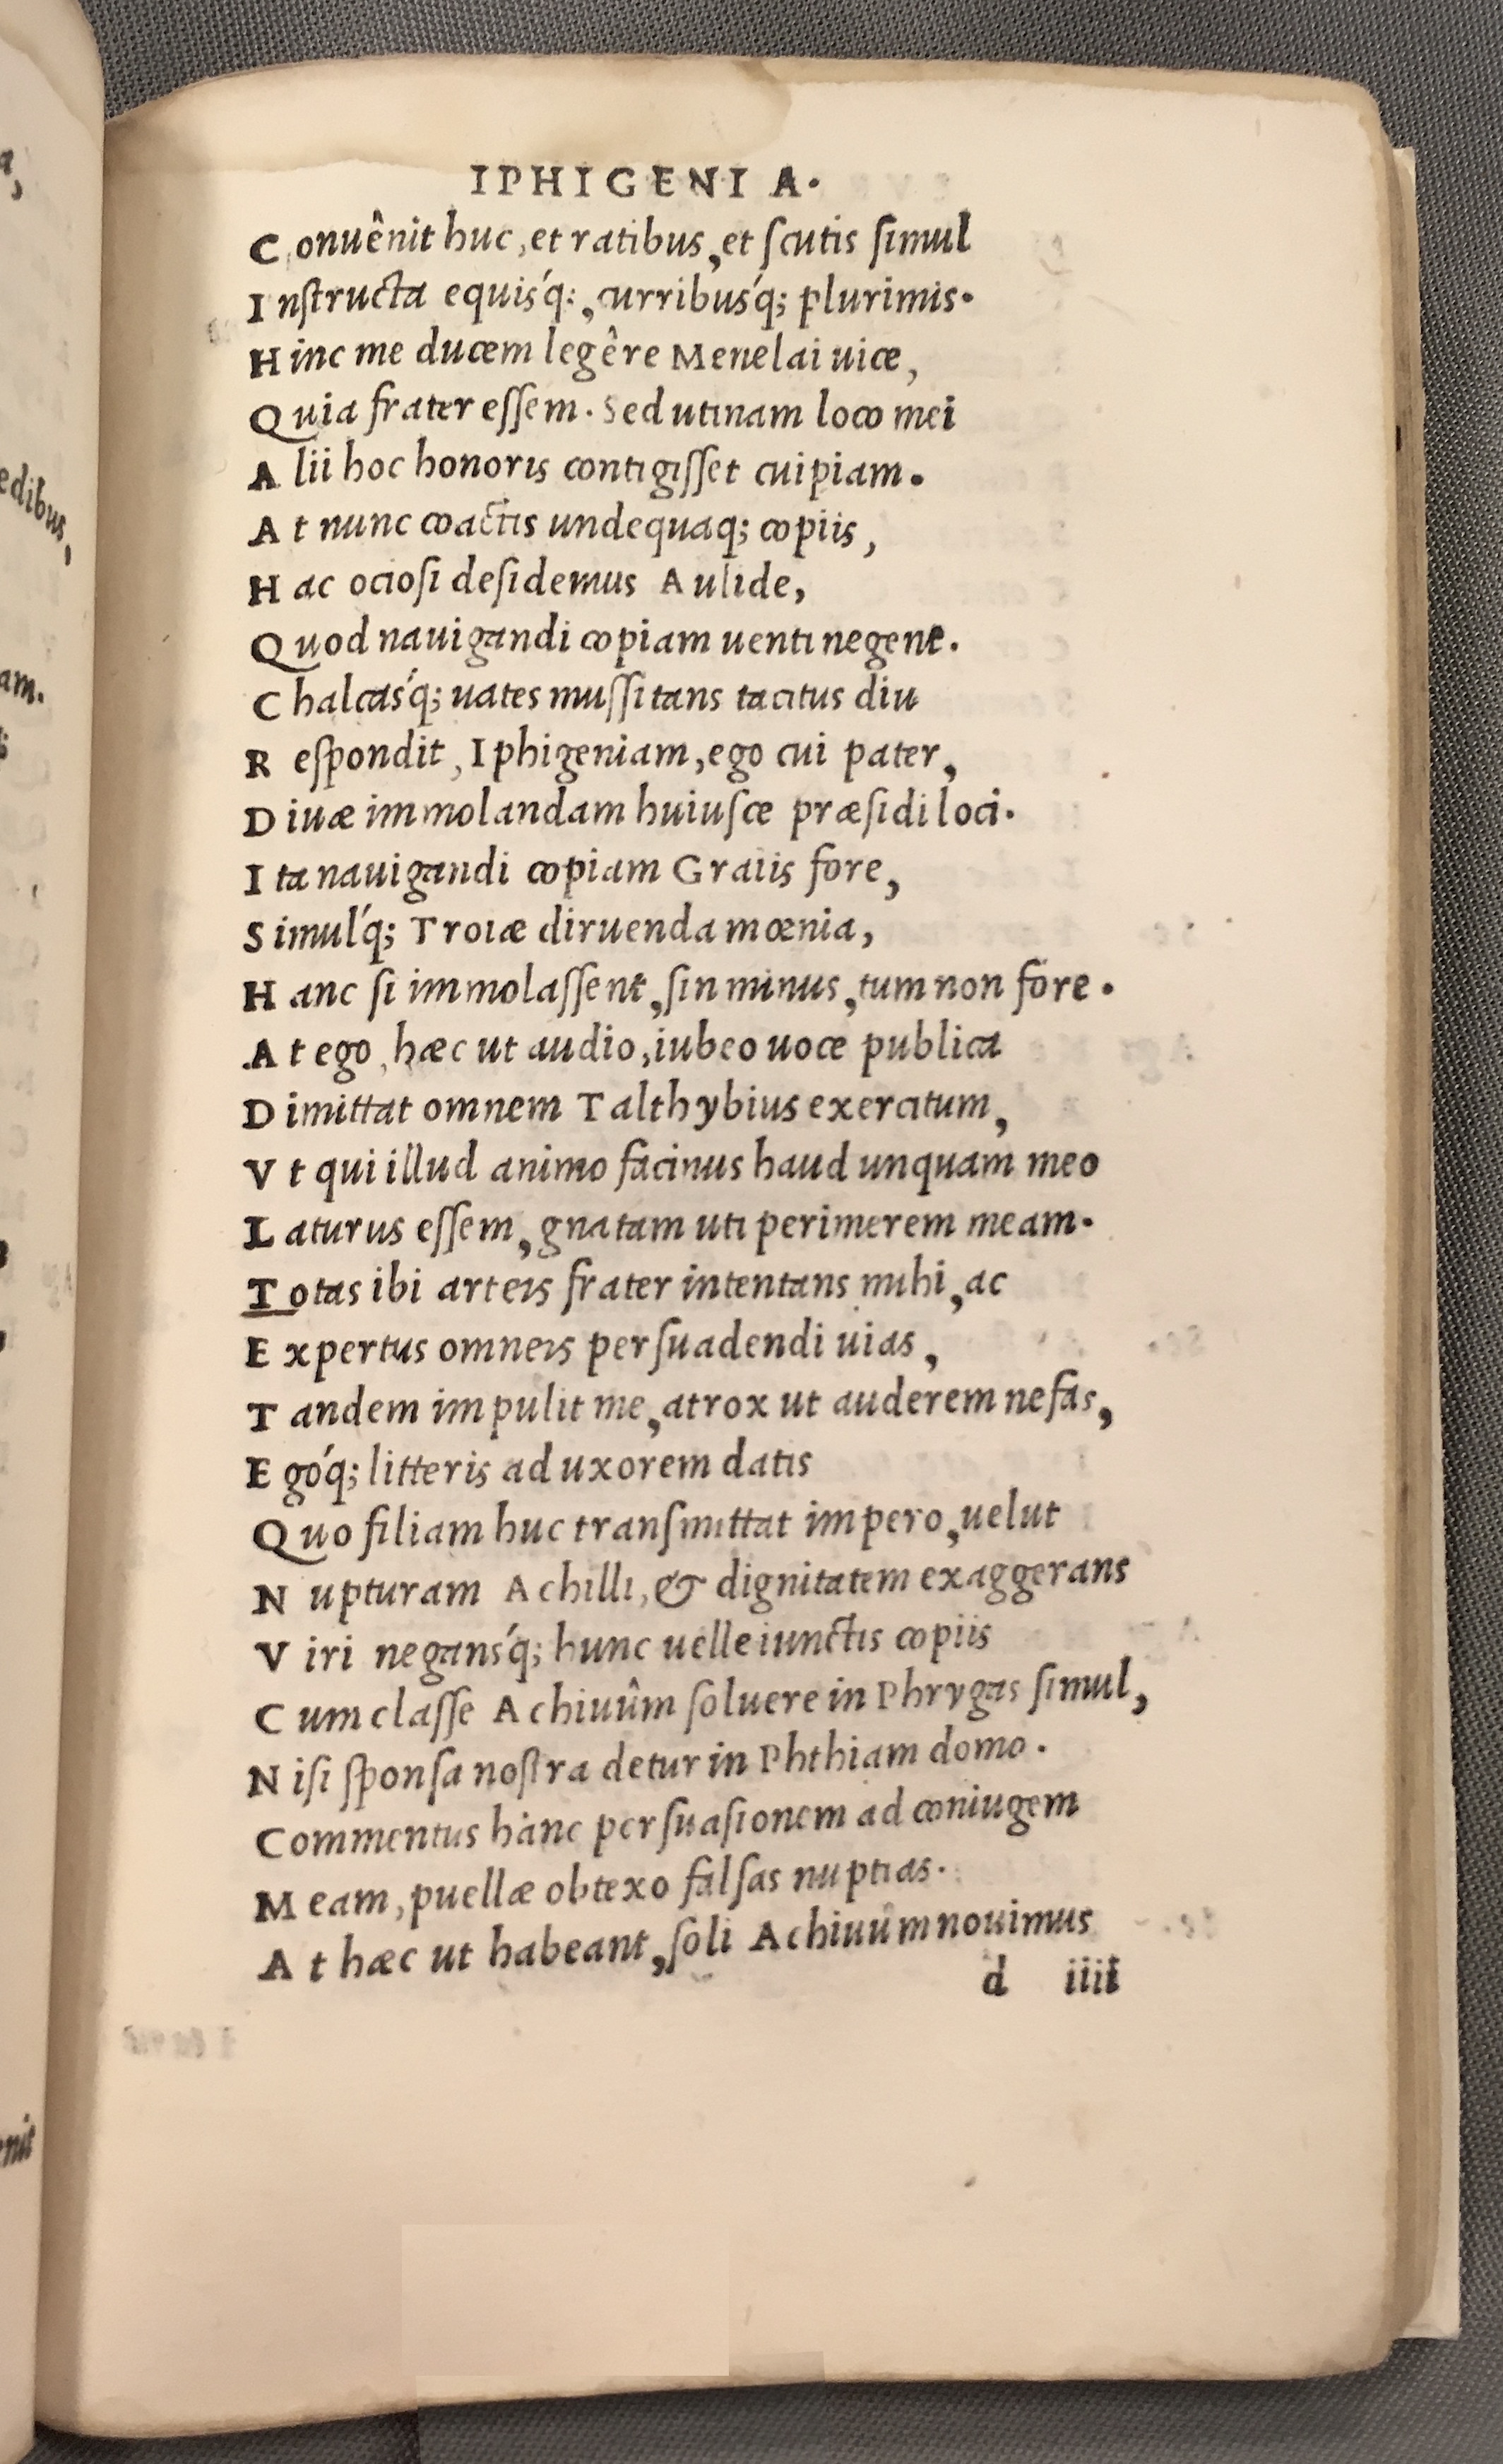 IPHIGENIA.
Conuênit huc, et ratibus, et ſcutis ſimul
Inſtructa equis'q;, curribus'q; plurimis.
Hinc me ducem legêre Menelai uice,
Quia frater eſſem. Sed utinam loco mei
Alii hoc honoris contigiſſet cuipiam.
At nunc coactis undequaq; copiis,
Hac ocioſi deſidemus Aulide,
Quod nauigandi copiam uenti negent.
Chalcas'q; uates muſſitans tacitus diu
Reſpondit, Iphigeniam, ego cui pater,
Diuæ immolandam huiuſce præſidi loci.
Ita nauigandi copiam Graiis fore,
Simul'q; Troiæ diruenda mœnia,
Hanc ſi immolaſſent, ſin minus, tum non fore.
At ego, hæc ut audio, iubeo uoce publica
Dimittat omnem Talthybius exercitum,
Vt qui illud animo facinus haud unquam meo
Laturus eſſem, gnatam uti perimerem meam.
Totas ibi arteis frater intentans mihi, ac
Expertus omneis perſuadendi uias,
Tandem impulit me, atrox ut auderem nefas,
Egó'q; litteris ad uxorem datis
Quo filiam huc tranſmittat impero, uelut
Nupturam Achilli, & dignitatem exaggerans
Viri negans'q; hunc uelle iunctis copiis
Cum claſſe Achiuûm ſoluere in Phrygas ſimul,
Niſi ſponſa noſtra detur in Phthiam domo.
Commentus hanc perſuaſionem ad coniugem
Meam, puellæ obtexo falſas nuptias.
At hæc ut habeant, ſoli Achiuûm nouimus
d iiii
edibus,
am.
enit